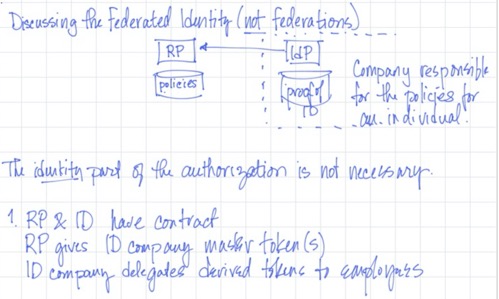 Discussing the Federated Identity (not federations)
RP
IdP
policies
proof of
ID
Company responsible
for the policies for
an individual.
The identity part of the authorization is not necessary.
1. RP & ID have contract
RP gives ID company master token(s)
ID company delegates derived tokens to employers